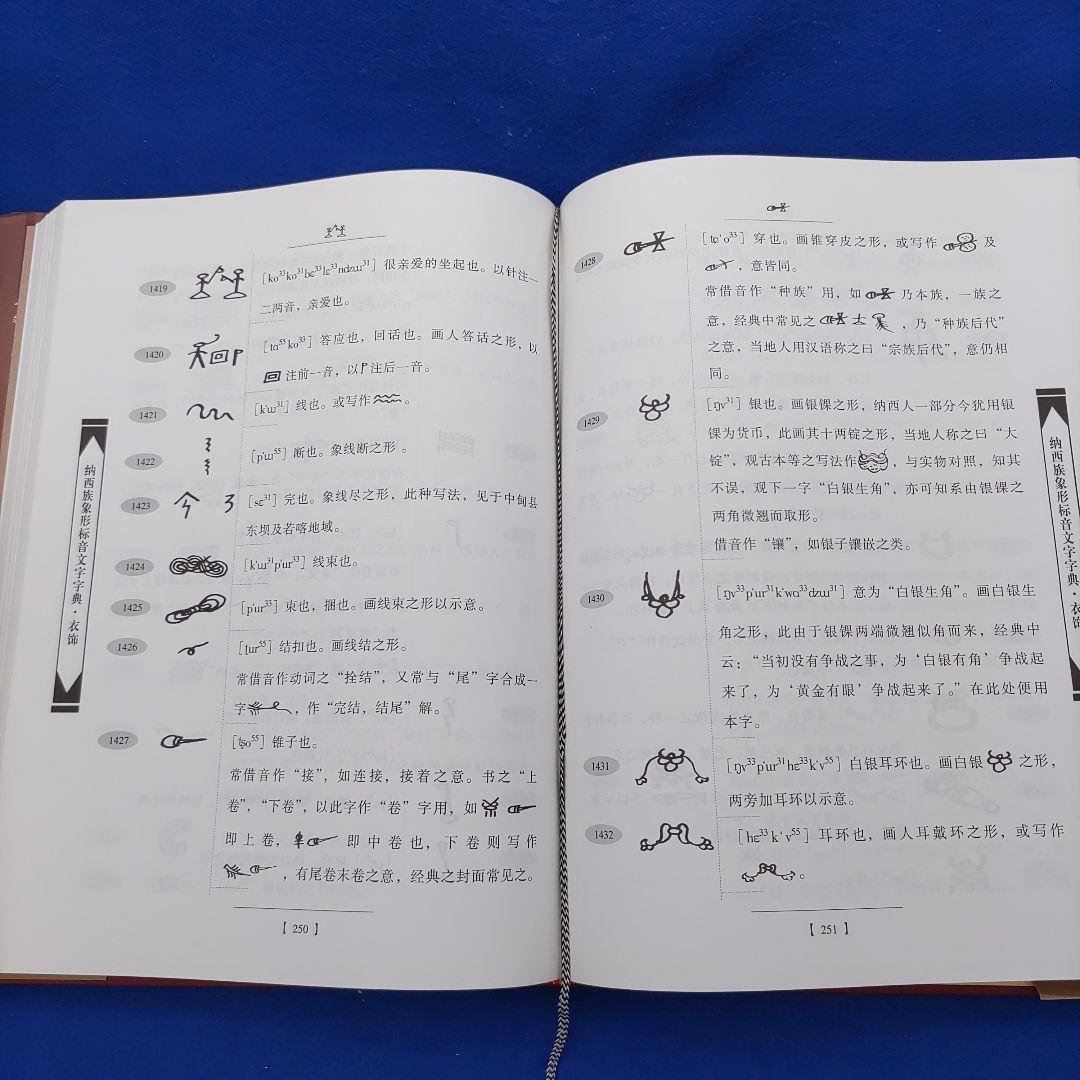 纳西族象形标音文字字典·衣饰
1419
[ko³³ko³¹bɛ³³lɛ³³ndzɯ³¹] 很亲爱的坐起也。以针注一
二两音，亲爱也。
1420
[tɑ⁵⁵ko³³] 答应也，回话也。画人答话之形，以
注前一音，以注后一音。
1421
[k'ɯ³¹] 线也。或写作。
1422
[p'ɯ⁵⁵] 断也。象线断之形。
1423
[sɛ³¹] 完也。象线尽之形，此种写法，见于中甸县
东坝及若喀地域。
1424
[k'ɯ³¹p'ur³³] 线束也。
1425
[p'ur³³] 束也，捆也。画线束之形以示意。
1426
[ʈur⁵⁵] 结扣也。画线结之形。
常借音作动词之“拴结”，又常与“尾”字合成一
字，作“完结，结尾”解。
1427
[tʂo⁵⁵] 锥子也。
常借音作“接”，如连接，接着之意。书之“上
卷”，“下卷”，以此字作“卷”字用，如
即上卷，即中卷也，下卷则写作
，有尾卷末卷之意，经典之封面常见之。
【 250 】
1428
[tɕ'o³³] 穿也。画锥穿皮之形，或写作及
，意皆同。
常借音作“种族”用，如乃本族，一族之
意，经典中常见之，乃“种族后代”
之意，当地人用汉语称之曰“宗族后代”，意仍相
同。
1429
[ŋv³¹] 银也。画银锞之形，纳西人一部分今犹用银
锞为货币，此画其十两锭之形，当地人称之曰“大
锭”，观古本等之写法作，与实物对照，知其
不误，观下一字“白银生角”，亦可知系由银锞之
两角微翘而取形。
借音作“镶”，如银子镶嵌之类。
1430
[ŋv³³p'ur³¹k'wɑ³³dzɯ³¹] 意为“白银生角”。画白银生
角之形，此由于银锞两端微翘似角而来，经典中
云：“当初没有争战之事，为‘白银有角’争战起
来了，为‘黄金有眼’争战起来了。”在此处便用
本字。
1431
[ŋv³³p'ur³¹hɛ³³k'v⁵⁵] 白银耳环也。画白银之形，
两旁加耳环以示意。
1432
[hɛ³³k'v⁵⁵] 耳环也，画人耳戴环之形，或写作
。
【 251 】
纳西族象形标音文字字典·衣饰